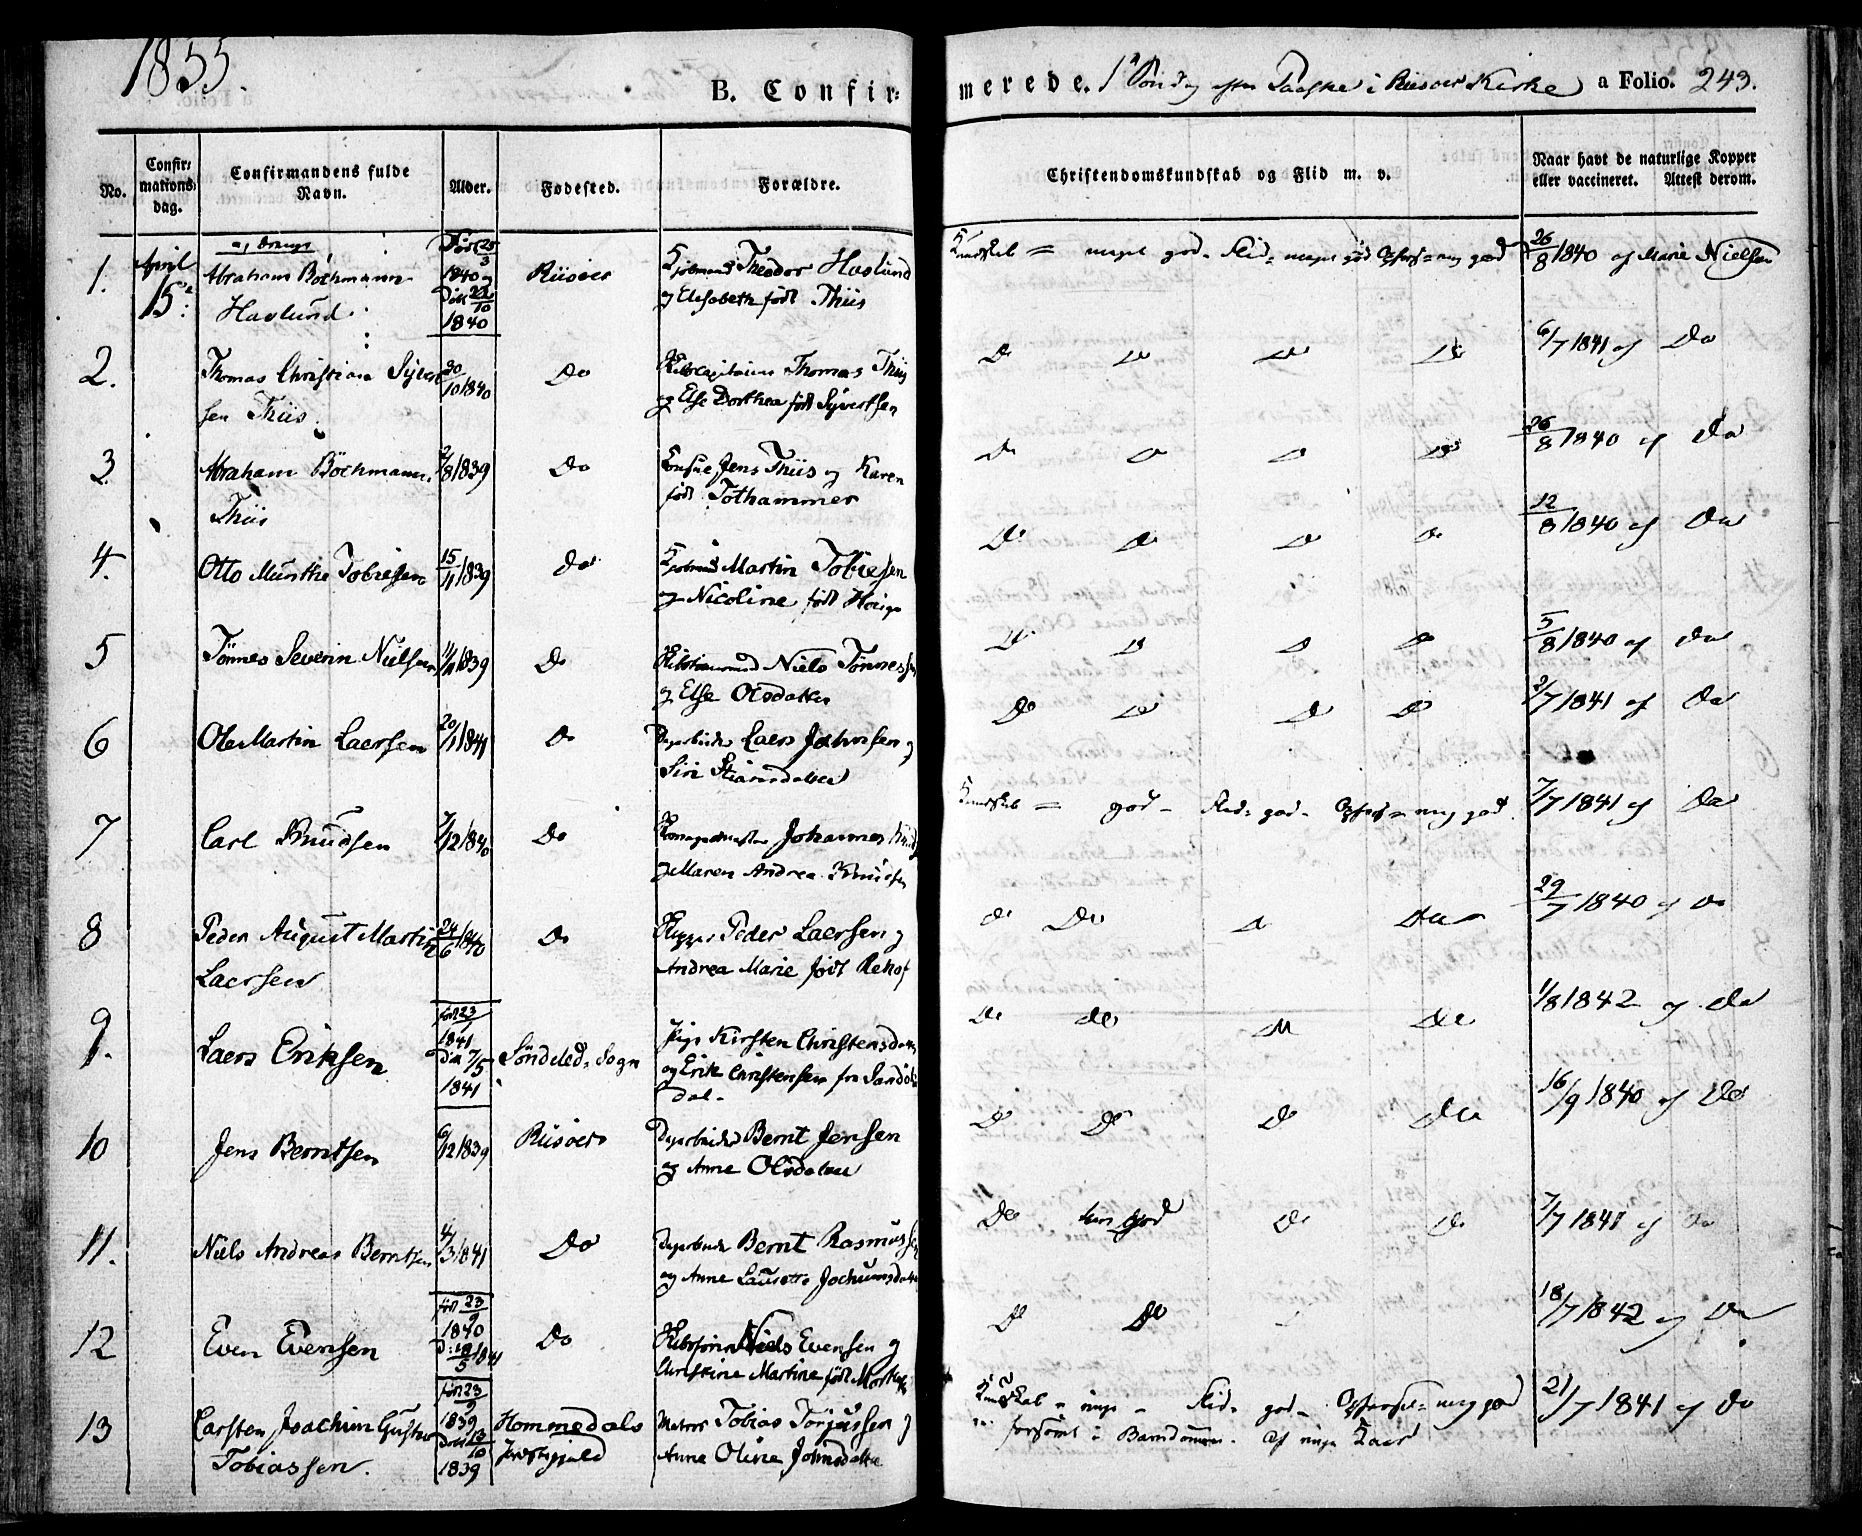 1855.
B. Confirmerede. 1ste Søndag efter Paaske i Riisøer Kirke a Folio. 243.
No.
Confirmations dag.
Confirmandens fulde Navn.
Alder.
Fødested.
Forældre.
Christendomskundskab og Flid m. v.
Naar havt de naturlige Kopper eller vaccineret. Attest derom.
a, Drenge
1. April 15de Abraham Böckmann Havlund
Født 25/3 1840 og Døbt 22/10 1840
Riisøer
Theodor Havlund
og Elisabeth født Thiis
Kundskab = meget god - Flid = meget god Opførsel = meg god
26/8 1840 af Marie Nielsen
2. Thomas Christian Syvert
sen Thiis.
30/10 1840
Do
Thomas Thiis
og Else Dorthea født Syvertsen
Do Do Do Do
6/7 1841 af Do
3. Abraham Böckmann
Thiis
2/8 1839
Do
Consul Jens Thiis og Karen
født Tothammer
Do Do Do Do
26/8 1840 af Do
4. Otto Munthe Tobiesen
15/11 1839
Do
Martin Tobiesen
og Nicoline født
Do Do Do Do
12/8 1840 af Do
5 Tönnes Severin Nielsen
1839
Do
Niels Tönnessen
og Else Olsdatter
Do Do Do Do
5/8 1840 af Do
6 Ole Martin Laersen
20/1 1841
Do
Laers Jahnsen og
Siri
Do Do Do Do
2/7 1841 af Do
7 Carl Knudsen
7/12 1840
Do
Johannes
og Maren Andrea Knudsen
Kundskab = god - Flid = god - Opførsel = meg god
7/7 1841 af Do
8 Peder August Martin
Laersen
24/6 1840
Do
Peder Laersen og
Andrea Marie født
Do Do Do Do
29/7 1840 af Do
9. Laers Eriksen
født 23/1 1841 Døbt 7/5 1841
Söndeleds Sogn
Pige Kirsten Christensdatter
og Erik Christensen fra
dal.
Do Do Do Do
1/8 1842 af Do
10 Jens Berntsen
6/12 1839
Riisøer
Bernt Jensen
og Anne Olsdatter
Do Do Do Do
16/9 1840 af Do
11. Niels Andreas Berntsen
4/3 1841
Do
Bernt Rasmussen
og Anne Jochumsdatter
Do god Do Do
7/7 1841 af Do
12 Even Evensen
født 23/9 1840 D: 18/5 1841
Do
Niels Evensen og
Christine Martine født
Do Do
18/7 1842 af Do
13 Carsten Joachim Gustav
Tobiassen.
født 23/9 1839 Døbt 13/10 1839
Hommedals
Præstegjeld
Matros Tobias Torjussen og
Anne Oline Johnsdatter
Kundskab = ringe - Flid = god - Opførsel = meg god
forsömt i Barndommen. Af ringe Kaar
21/7 1841 af Do